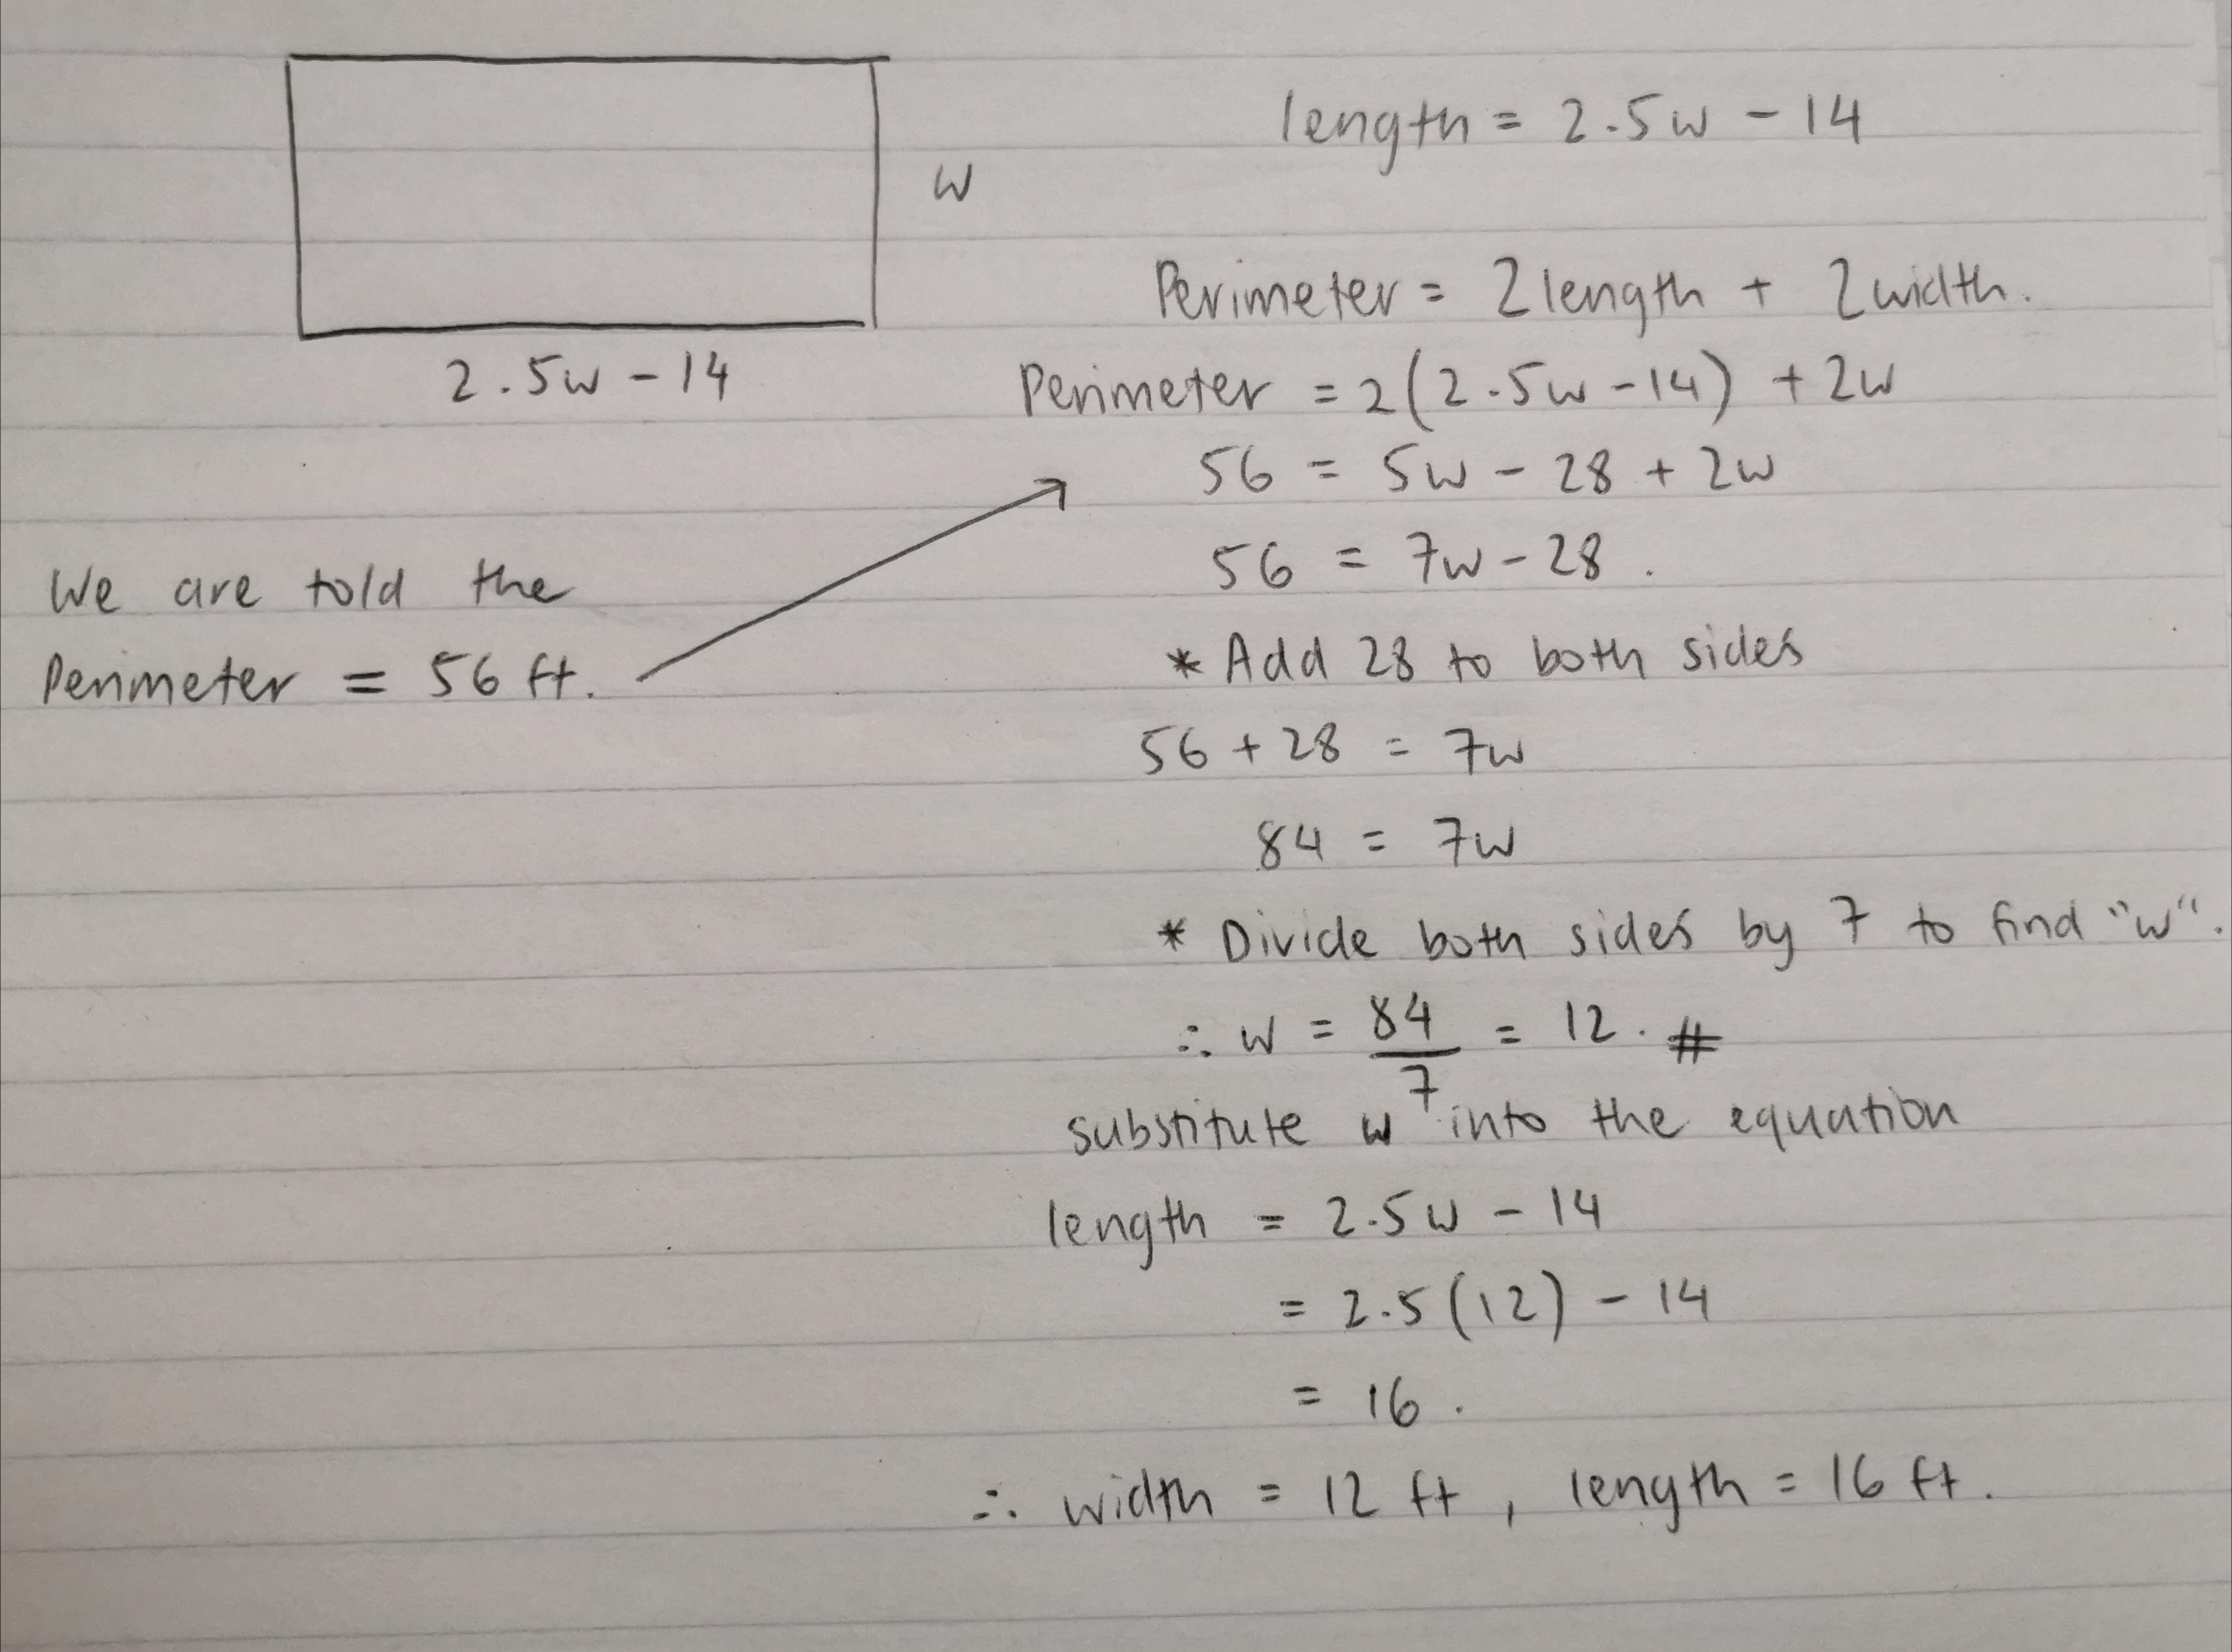 length = 2.5w - 14
w
Perimeter = 2length + 2width.
2.5w - 14
Perimeter = 2(2.5w - 14) + 2w
56 = 5w - 28 + 2w
56 = 7w - 28.
We are told the
Perimeter = 56 ft.
* Add 28 to both sides
56 + 28 = 7w
84 = 7w
* Divide both sides by 7 to find "w".
∴ w = 84/7 = 12. #
substitute w into the equation
length = 2.5w - 14
= 2.5(12) - 14
= 16.
∴ width = 12 ft, length = 16 ft.